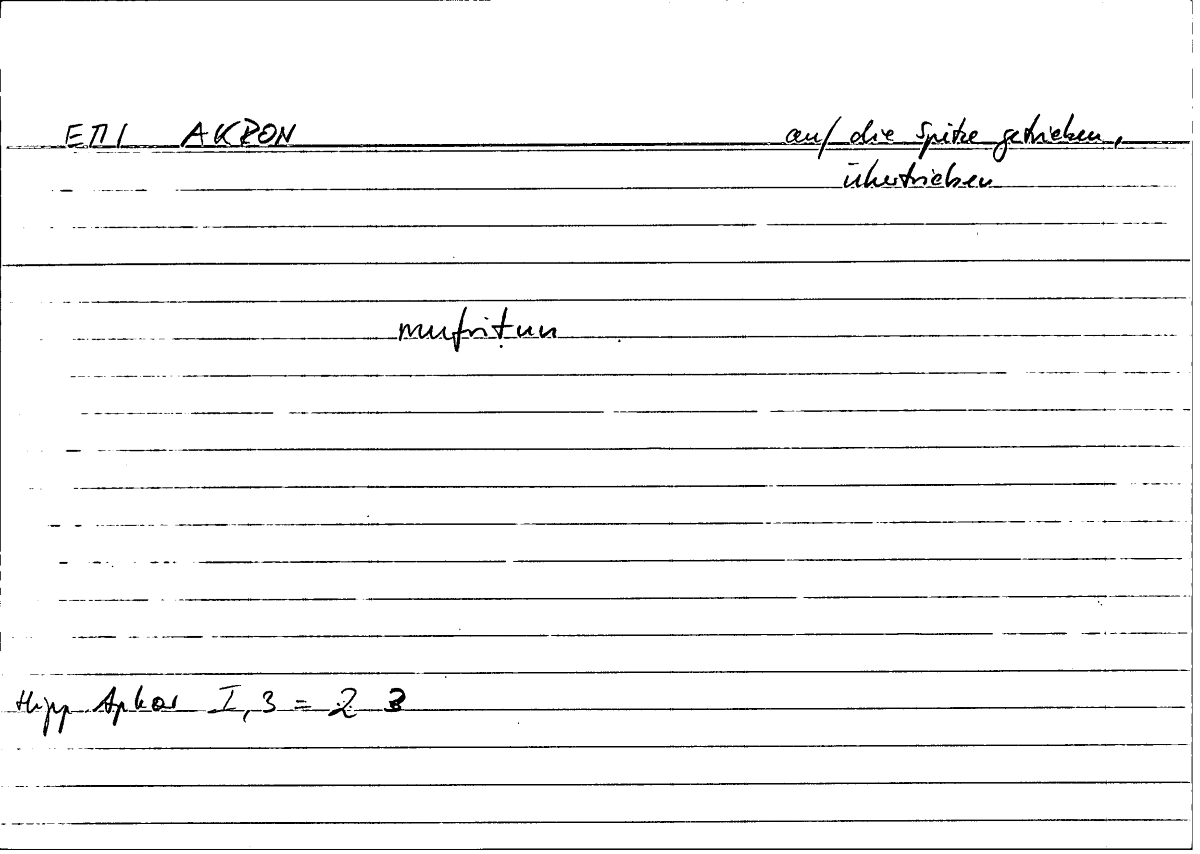 ΕΠΙ ΑΚΡΟΝ auf die Spitze getrieben,
übertrieben
mufriṭun
Hipp Aphor I, 3 = 2 3